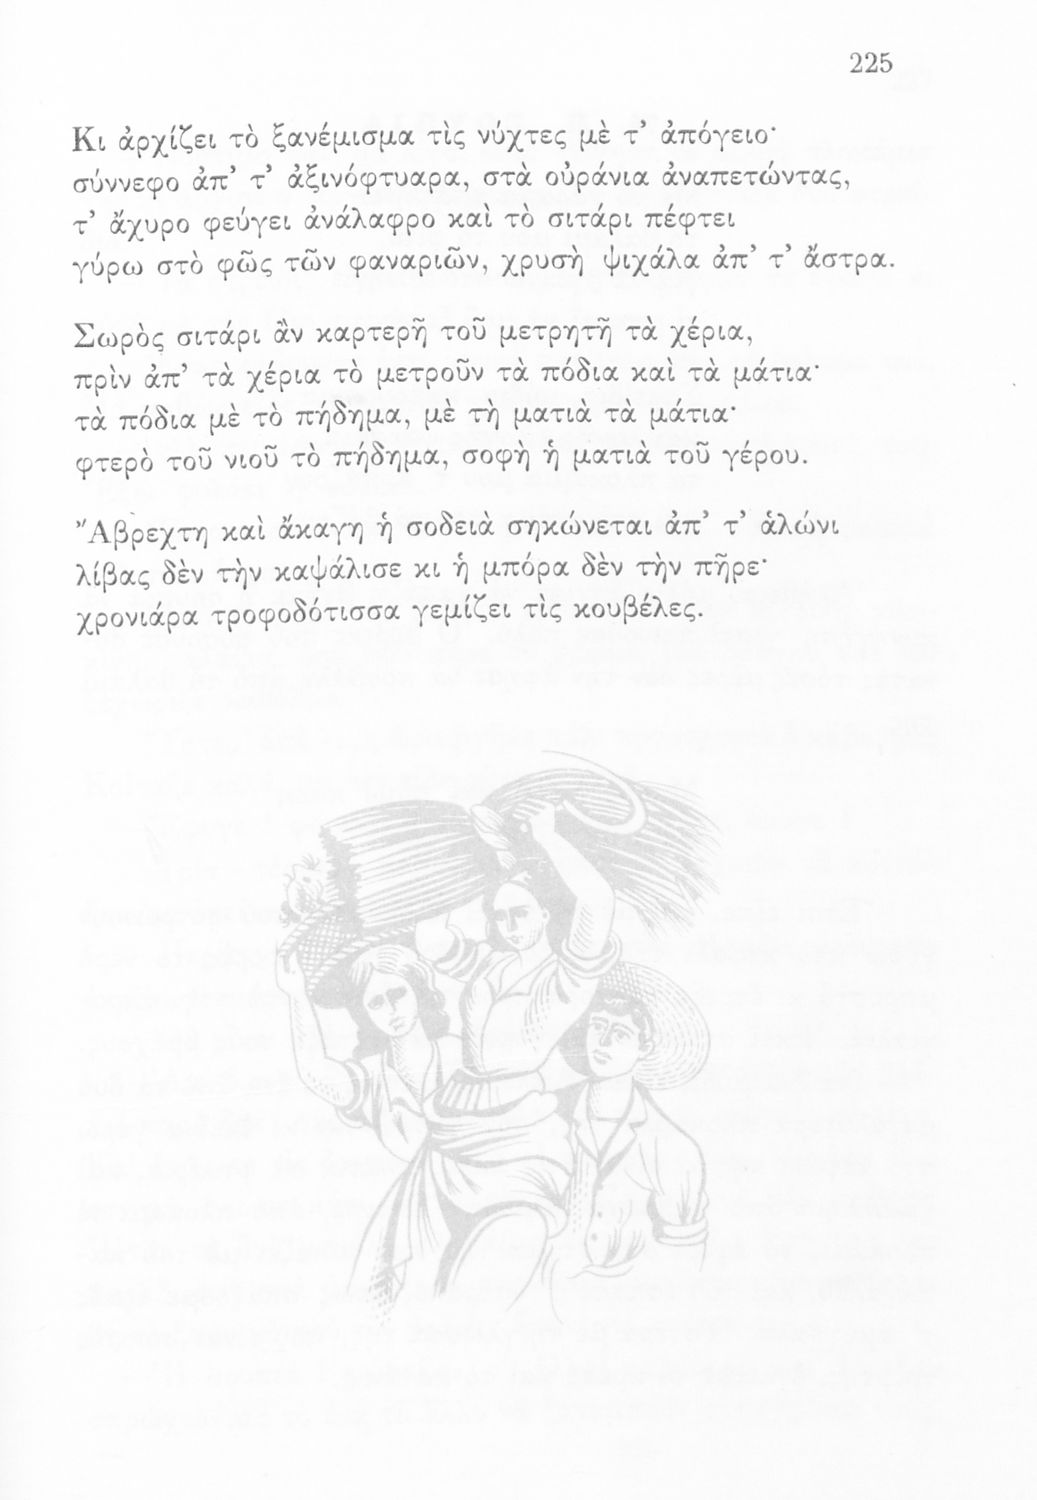 225
Κι ἀρχίζει τὸ ξανέμισμα τὶς νύχτες μὲ τ’ ἀπόγειο·
σύννεφο ἀπ’ τ’ ἀξινόφτυαρα, στὰ οὐράνια ἀναπετώντας,
τ’ ἄχυρο φεύγει ἀνάλαφρο καὶ τὸ σιτάρι πέφτει
γύρω στὸ φῶς τῶν φαναριῶν, χρυσὴ ψιχάλα ἀπ’ τ’ ἄστρα.
Σωρὸς σιτάρι ἂν καρτερῆ τοῦ μετρητῆ τὰ χέρια,
πρὶν ἀπ’ τὰ χέρια τὸ μετροῦν τὰ πόδια καὶ τὰ μάτια·
τὰ πόδια μὲ τὸ πήδημα, μὲ τὴ ματιὰ τὰ μάτια·
φτερὸ τοῦ νιοῦ τὸ πήδημα, σοφὴ ἡ ματιὰ τοῦ γέρου.
Ἄβρεχτη καὶ ἄκαγη ἡ σοδειὰ σηκώνεται ἀπ’ τ’ ἁλώνι
λίβας δὲν τὴν καψάλισε κι ἡ μπόρα δὲν τὴν πῆρε·
χρονιάρα τροφοδότισσα γεμίζει τὶς κουβέλες.